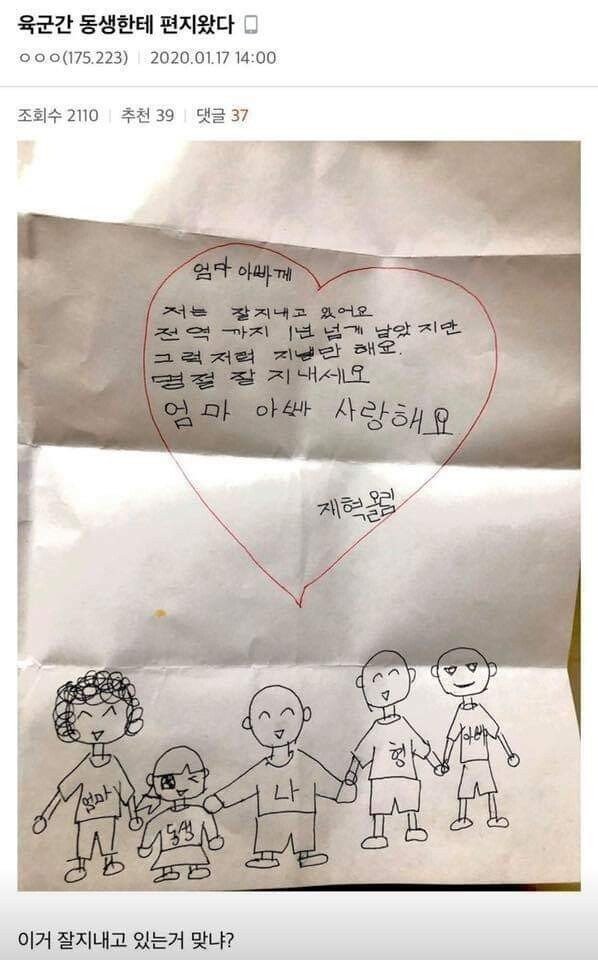 육군간 동생한테 편지왔다
ㅇㅇㅇ(175.223) | 2020.01.17 14:00
조회수 2110 | 추천 39 | 댓글 37
엄마 아빠께
저는 잘지내고 있어요
전역 까지 1년 넘게 남았 지만
그럭 저럭 지낼만 해요.
명절 잘 지내세요
엄마 아빠 사랑해요
재혁올림
엄마 동생 나 형 아빠
이거 잘지내고 있는거 맞냐?